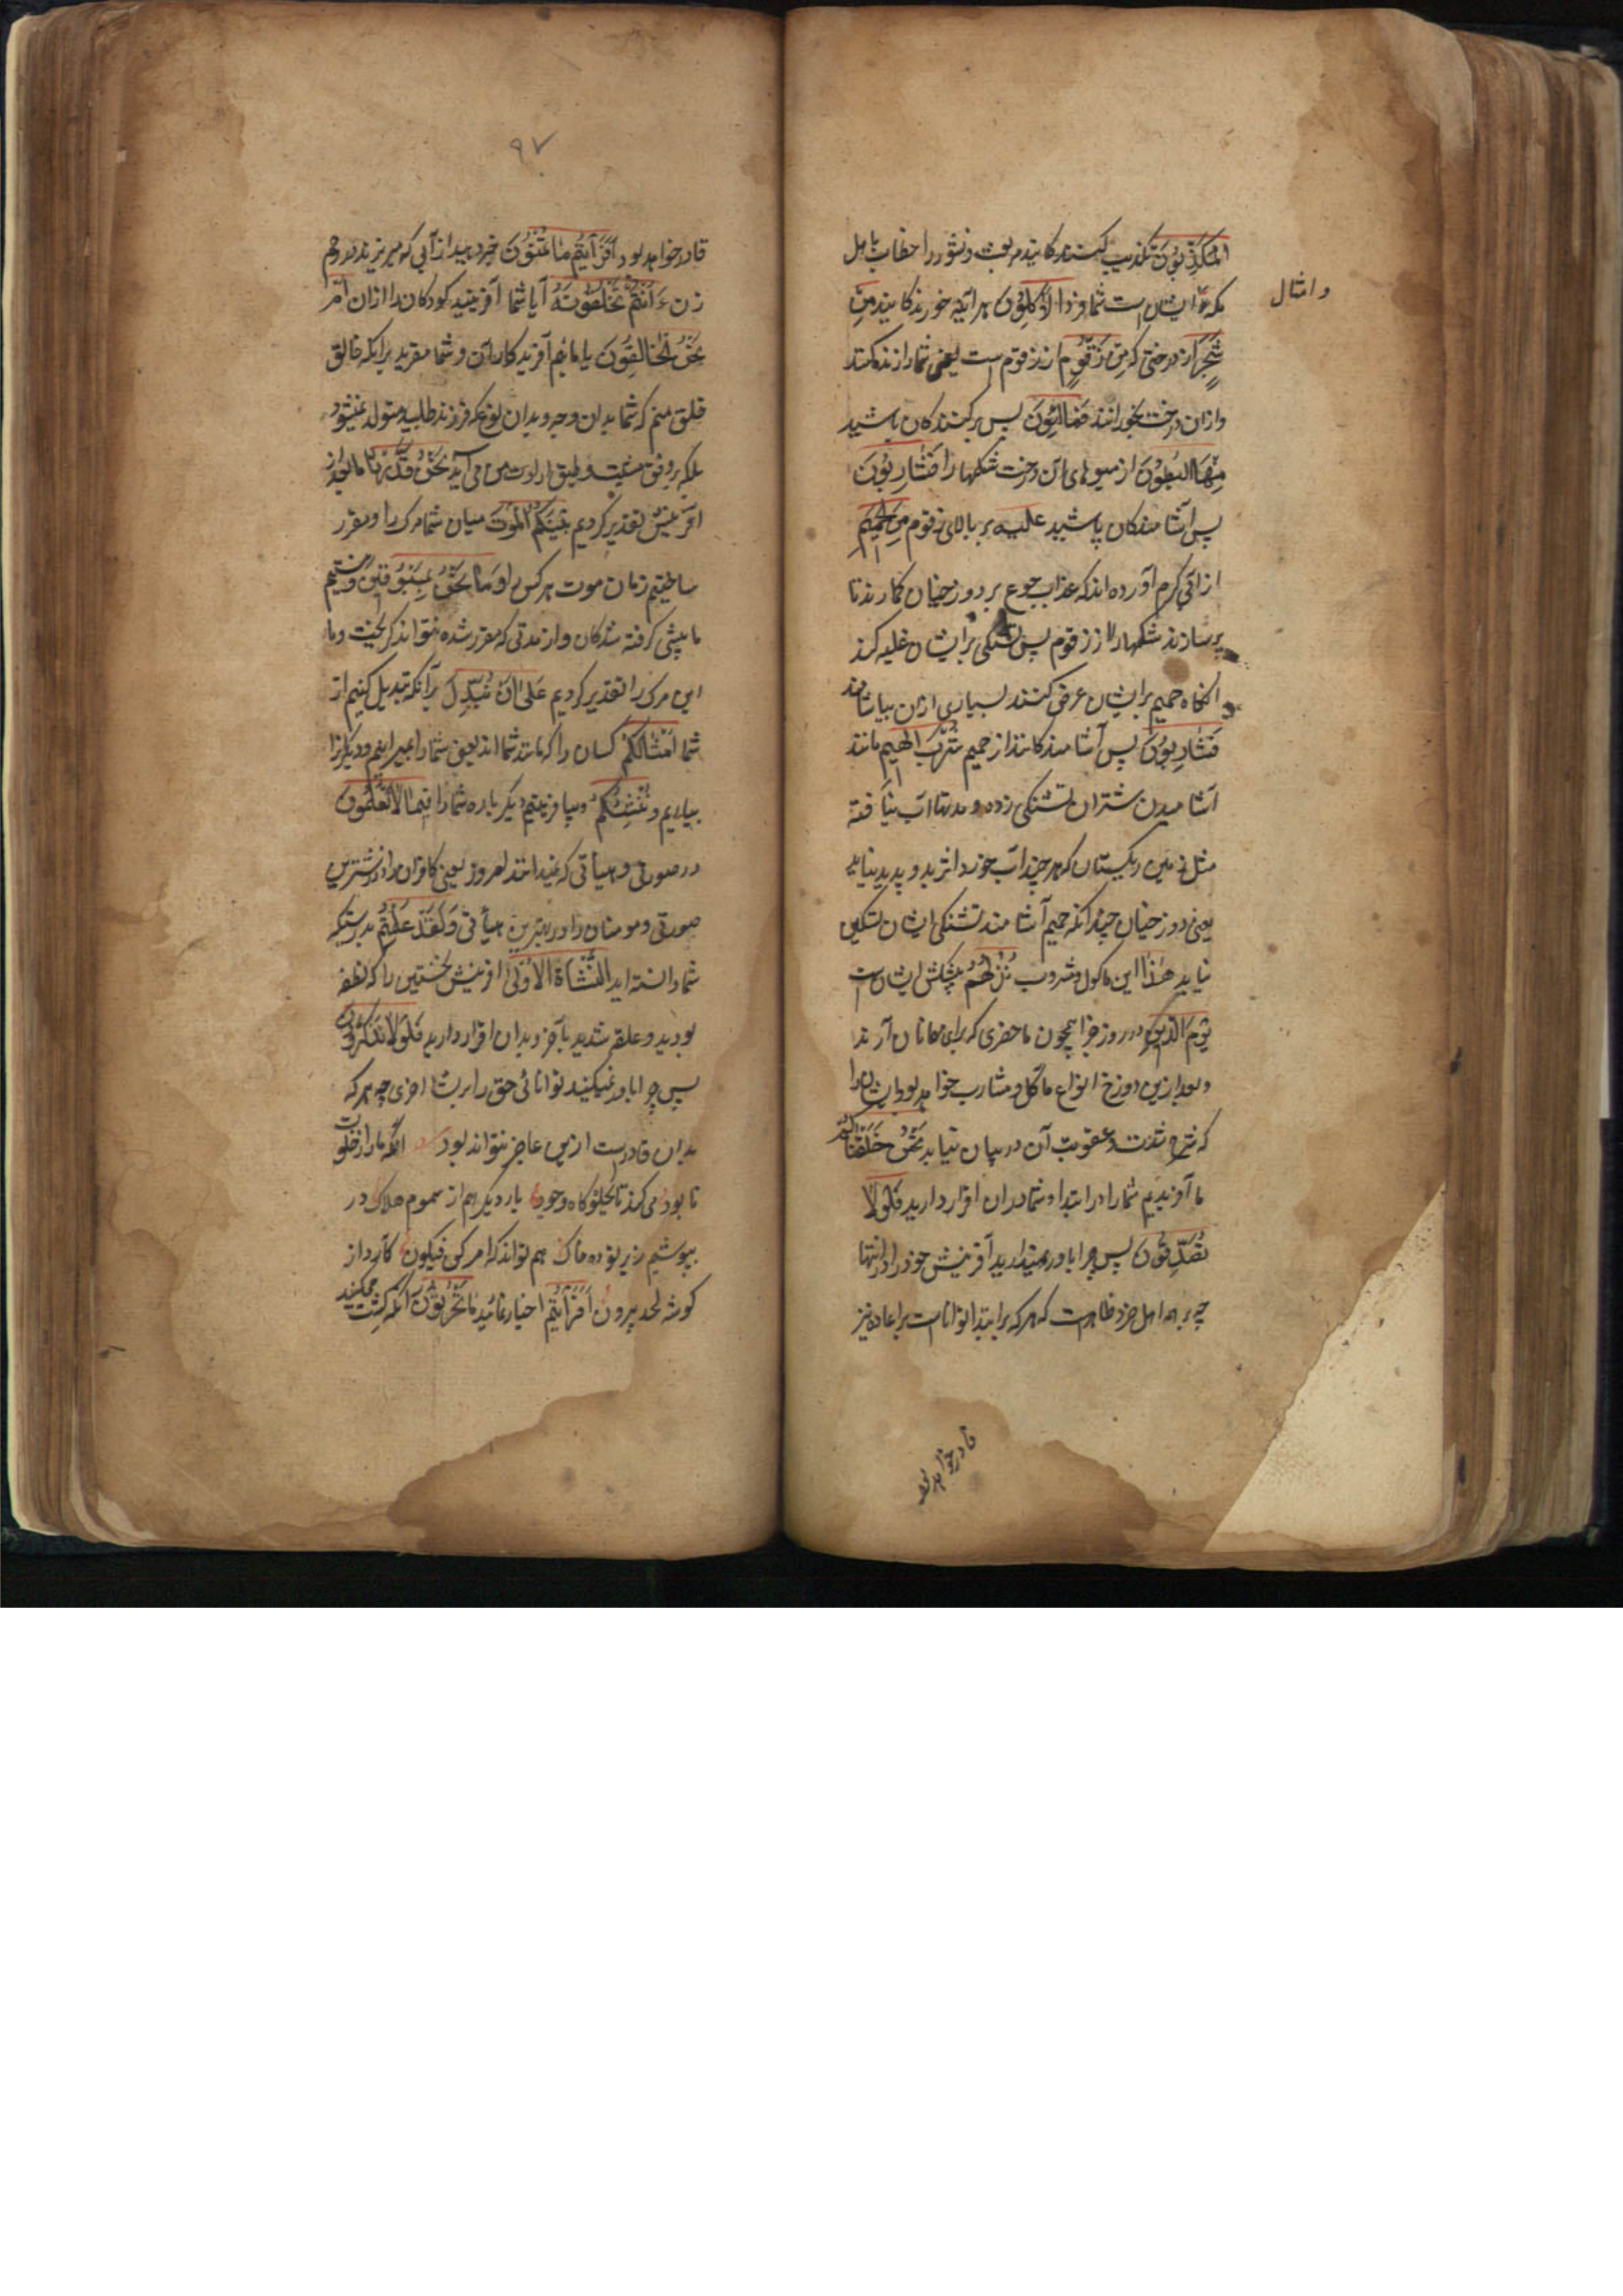 المکذبون تکذیب کنندگانید مر بعث و نشور را خطاب باهل
مکه و ایشان است شما فردا لآکلون هر آینه خورندگانید من
و امثال
شجر از درختی که من زقوم از زقوم است یعنی شما را زنده کنند
و ازان درخت بخورانند فمالئون پس پر کنندگان باشید
منها البطون از میوهای آن درخت شکمها را فشاربون
پس آشامندگان باشید علیه بر بالای زقوم من الحمیم
از آبی گرم آورده اند که عذاب جوع بر دوزخیان گمارند تا
پر سازند شکمها را از زقوم پس تشنگی بر ایشان غلبه کند
انگاه حمیم بر ایشان عرض کنند بسیاری ازان بیاشامند
فشاربون پس آشامندگانند از حمیم شرب الهیم مانند
آشامیدن شتران تشنگی زده و مدتها آب نیافته
مثل زمین ریگستان که هر چند آب خورد اثر بدو پدید نیاید
یعنی دوزخیان چندانکه حمیم آشامند تشنگی ایشان تسکین
نیابد هذا این ماکول و مشروب نزلهم پیشکش ایشان است
یوم الدین در روز جزا همچون ماحضری که برای مهمانان آرند
و بعد ازین دوزخ انواع مآکل و مشارب خواهد بود ایشان را
که شرح شدت و عقوبت آن در بیان نیاید نحن خلقناکم
ما آفریدیم شما را در ابتدا و شما بدان اقرار دارید فلولا
تصدقون پس چرا باور نمیدارید آفرینش خود را در انتها
چه بر همه اهل خرد ظاهر است که هر که بر ابتدا تواناست بر اعاده نیز
قادر خواهد بود
۹۷
قادر خواهد بود افرأیتم ما تمنون خبر دهید از آبی که میریزید در رحم
زن ءأنتم تخلقونه آیا شما آفرینید کودکان را ازان ام
نحن الخالقون یا مائیم آفریدگاران و شما مقرید برانکه خالق
خلق منم که شما بدان وجه و بدان نوع که فرزند طلبید متولد نمیشود
بلکه بر وفق مشیت و طبق ارادت من می آید نحن قدرنا ما بعد از
آفرینش تقدیر کردیم بینکم الموت میان شما مرگ را و مقرر
ساختیم زمان موت هر کس را و ما نحن بمسبوقین و نیستیم
ما پیشی گرفته شدگان و از مدتی که مقرر شده نتواند گریخت و ما
این مرگ را تقدیر کردیم علی ان نبدل برآنکه تبدیل کنیم از
شما امثالکم کسان را که مانند شما اند یعنی شما را بمیرانیم و دیگران را
بیاریم و ننشئکم و بیافرینیم دیگر باره شما را فیما لا تعلمون
در صورتی و هیأتی که نمیدانند امروز یعنی کافران را در زشترین
صورتی و مومنان را در بهترین هیأتی و لقد علمتم بدرستیکه
شما دانسته اید النشأة الاولی آفرینش نخستین را که نطفه
بودید و علقه شدید تا آخر و بدان اقرار دارید فلولا تذکرون
پس چرا باور نمیکنید توانائی حق را بر نشأ اخری چه هر که
بدان قادر است ازین عاجز نتواند بود انکه ما را ز خلوت
نابود می کند تا بجلوگاه وجود بار دیگر هم از سموم هلاک در
بپوشیم زیر توده خاک هم تواند که امر کن فیکون کارد از
گوشه لحد بیرون افرأیتم اخبار نمائید ما تحرثون آنکه کشت میکنید